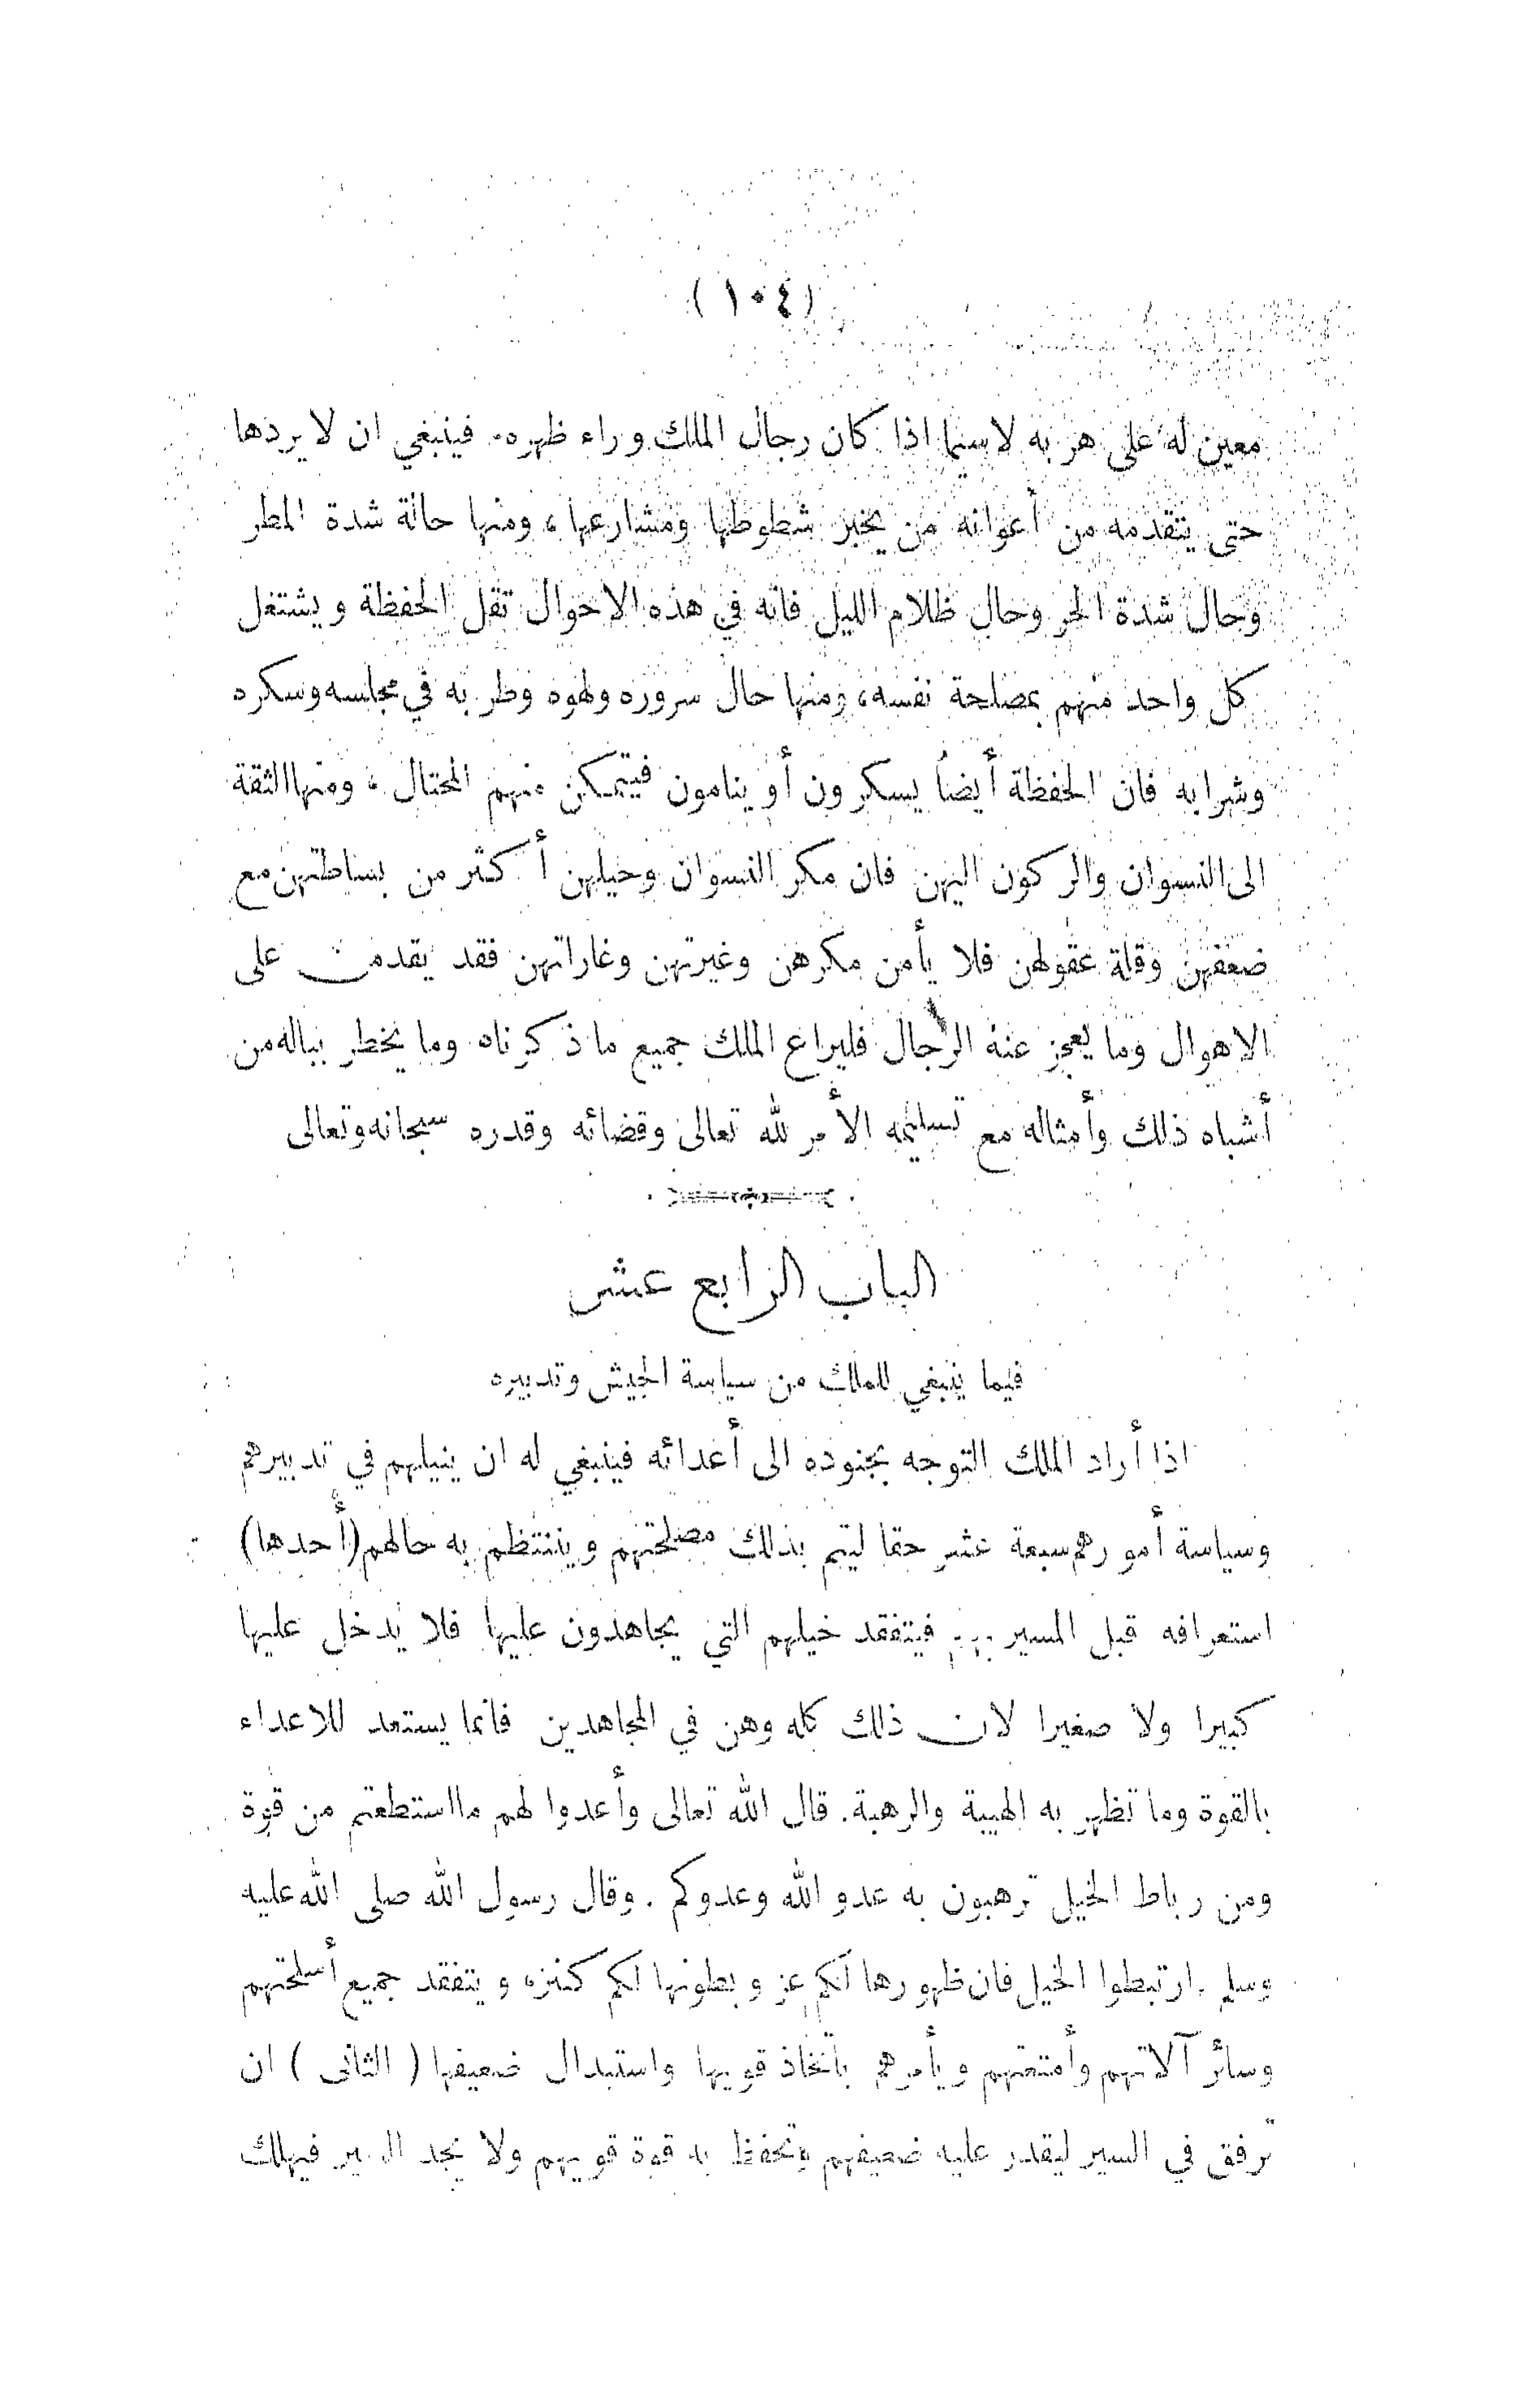 (١٠٤)
معين له على هربه لاسيما اذا كان رجال الملك وراء ظهره. فينبغي ان لا يردها
حتى يتقدمه من أعوانه من يخبر شطوطها ومشارعها، ومنها حالة شدة المطر
وحال شدة الحر وحال ظلام الليل فانه في هذه الاحوال تقل الحفظة ويشتغل
كل واحد منهم بمصلحة نفسه، ومنها حال سروره ولهوه وطربه في مجلسه وسكره
وشرابه فان الحفظة أيضاً يسكرون أو ينامون فيتمكن منهم المحتال، ومنها الثقة
الى النسوان والركون اليهن فان مكر النسوان وحيلهن أكثر من بساطتهن مع
ضعفهن وقلة عقولهن فلا يأمن مكرهن وغيرتهن وغاراتهن فقد يقدمن على
الاهوال وما يعجز عنه الرجال فليراع الملك جميع ما ذكرناه وما يخطر بباله من
أشباه ذلك وأمثاله مع تسليمه الأمر لله تعالى وقضائه وقدره سبحانه وتعالى
الباب الرابع عشر
فيما ينبغي للملك من سياسة الجيش وتدبيره
اذا أراد الملك التوجه بجنوده الى أعدائه فينبغي له ان ينيلهم في تدبيرهم
وسياسة أمورهم سبعة عشر حقا ليتم بذلك مصلحتهم وينتظم به حالهم (أحدها)
استعرافه قبل المسير بهم فيتفقد خيلهم التي يجاهدون عليها فلا يدخل عليها
كبيرا ولا صغيرا لان ذلك كله وهن في المجاهدين فانما يستعد للاعداء
بالقوة وما تظهر به الهيبة والرهبة. قال الله تعالى وأعدوا لهم ما استطعتم من قوة
ومن رباط الخيل ترهبون به عدو الله وعدوكم. وقال رسول الله صلى الله عليه
وسلم. ارتبطوا الخيل فان ظهورها لكم عز وبطونها لكم كنز، ويتفقد جميع أسلحتهم
وسائر آلاتهم وأمتعتهم ويأمرهم باتخاذ قويها واستبدال ضعيفها (الثانى) ان
ترفق في السير ليقدر عليه ضعيفهم وتحفظ به قوة قويهم ولا يجد السير فيهلك